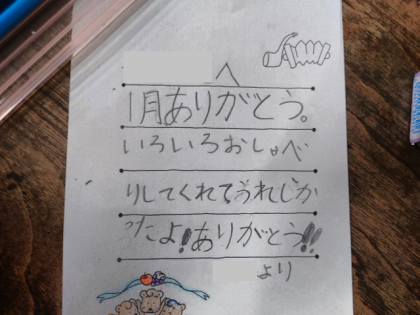 へ
1月ありがとう。
いろいろおしゃべ
りしてくれてうれしか
ったよ!ありがとう!!
より